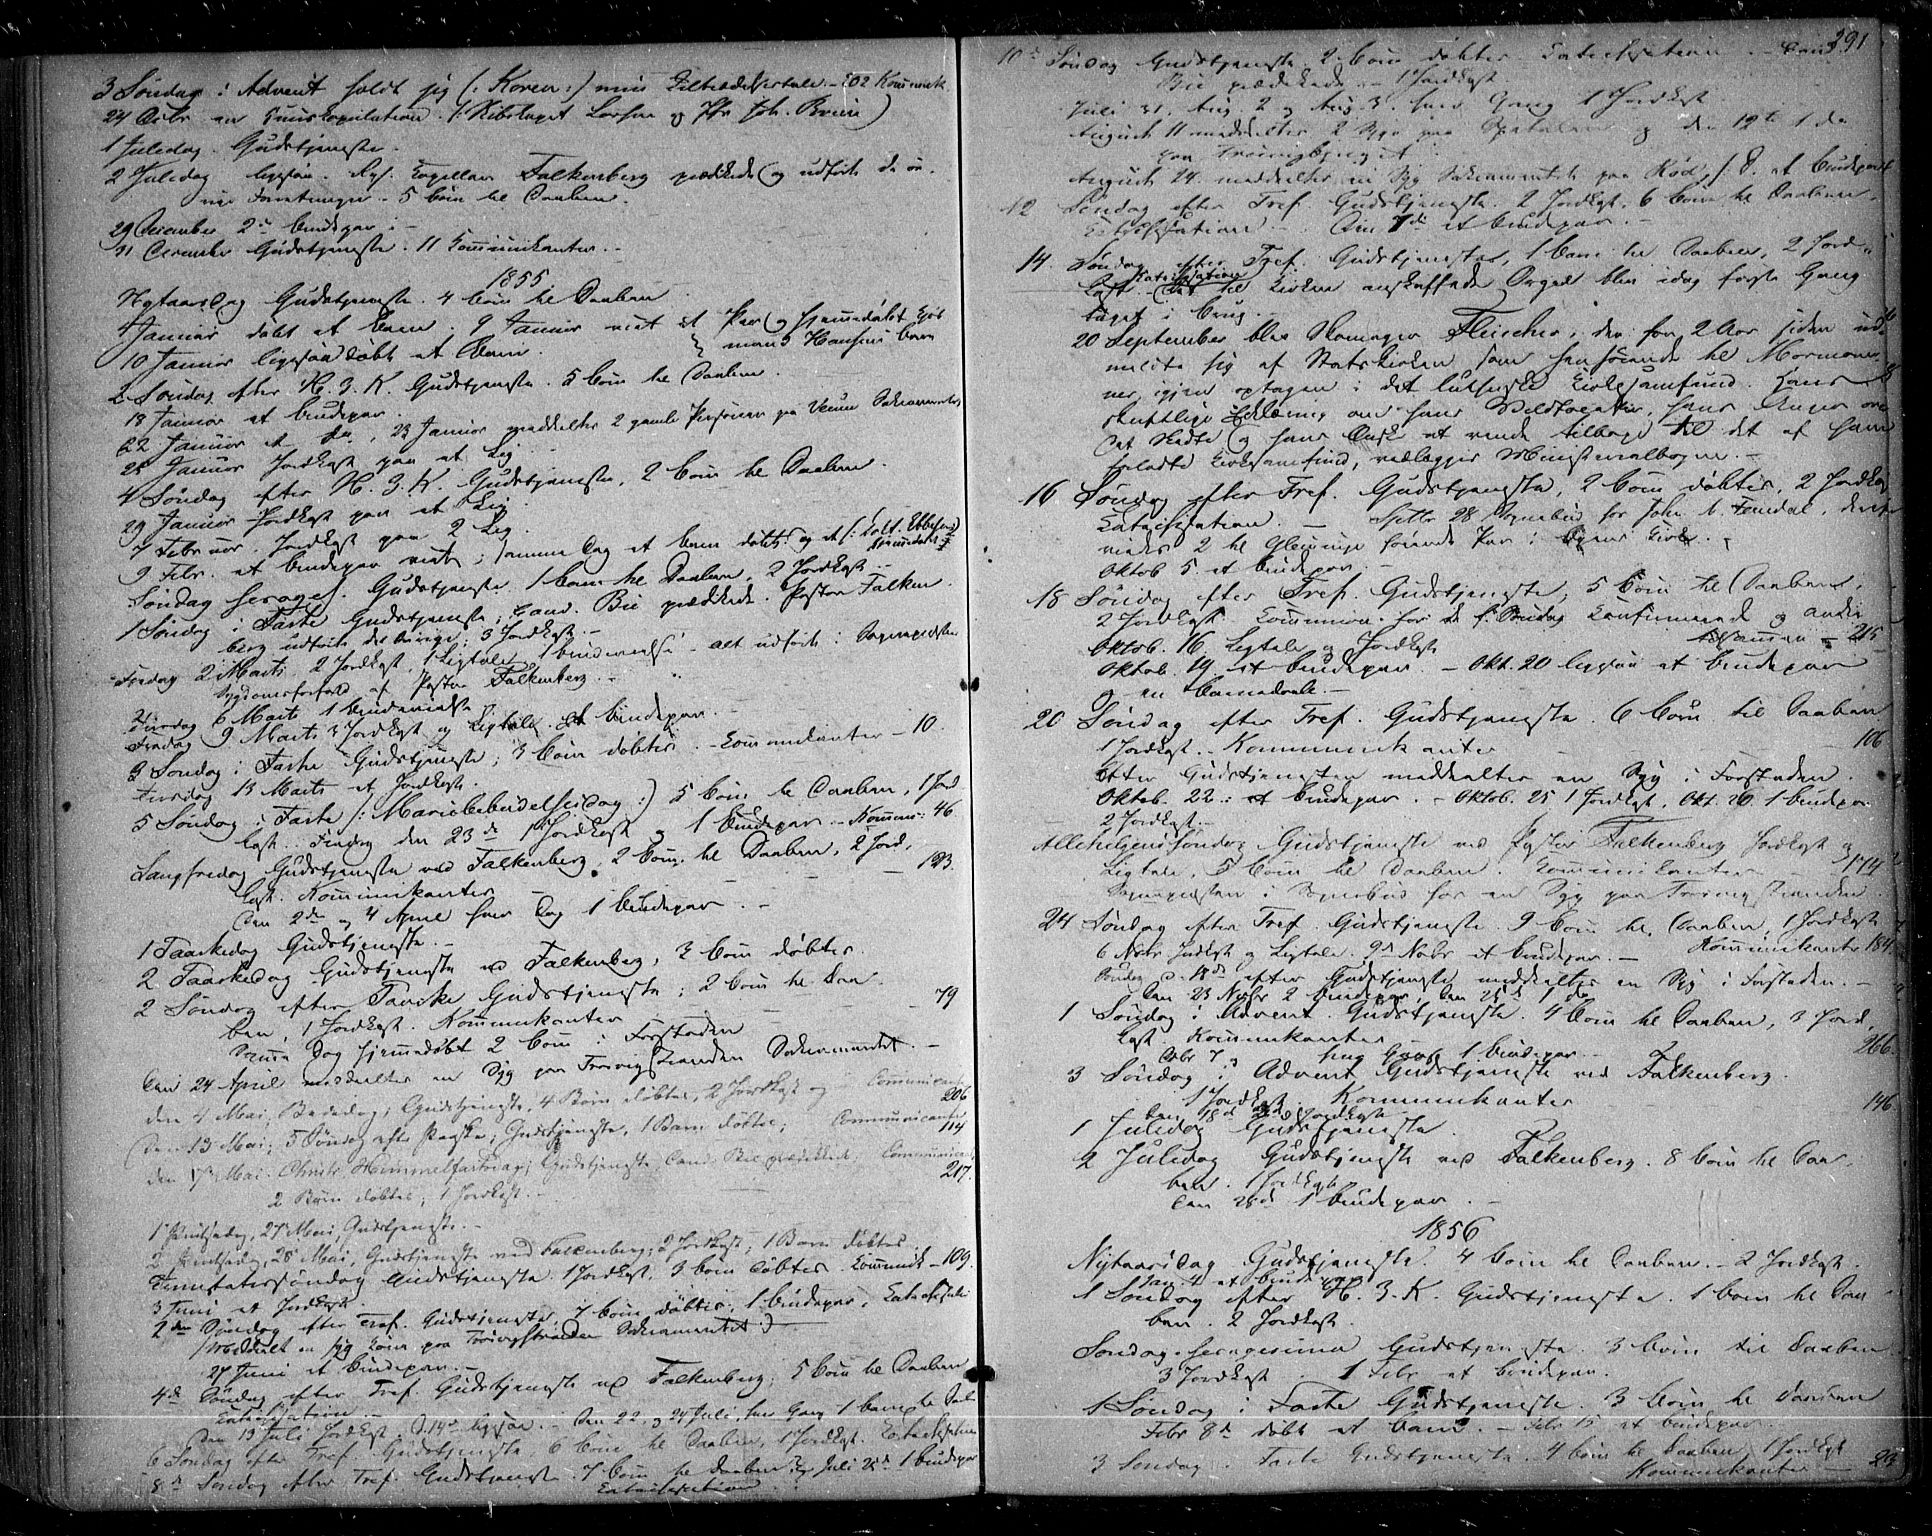 3 Søndag i Advent holdt jeg (: Koren :) min Tiltrædelsestale – 102 Kommunik
24 Debr en Huuskopulation
1 Juledag. Gudstjeneste.
2 Juledag ligesaa. Falkenberg prædikede og udførte de øv-
rige Forretninger – 5 børn til Daaben.
29 December 2 brudepar. –
31 December Gudstjeneste. 11 Kommunikanter. –
1855
Nytaarsdag Gudstjeneste. 4 børn til Daaben
4 Januar døbt et barn. 9 Januar viet et Par og hjemmedøbt
mand Hansens barn
10 Januar ligesaa døbt et Barn.
2 Søndag efter H. 3. K. Gudstjeneste. 5 børn til Daaben.
18 Januar et brudepar.
22 Januar et do, 23 Januar meddeltes 2 gamle Personer paa Sakramentet
25 Januar Jordkast paa et Lig
4 Søndag efter H. 3. K. Gudstjeneste, 2 børn til Daaben.
29 Januar Jordkast paa et Lig
7 Februar. Jordkast paa 2 Lig.
9 Febr. et brudepar viet; samme Dag et barn døbt og et
Søndag Seragel. Gudstjeneste 1 barn til Daaben. 2 Jordkast –
1 Søndag i Faste Gudstjeneste; Cand. Bie prædikede. Pastor Falken-
berg udførte det Øvrige; 3 Jordkast –
Fredag 2 Marts 2 Jordkast, 1 Ligtale, 1 brudevielse – alt udført i Sognepræstens
Sygdomsforfald af Pastor Falkenberg. –
Tirsdag 6 Marts 1 brudevielse
Fredag 9 Marts 3 Jordkast og Ligtale. et brudepar. –
3 Søndag i Faste Gudstjeneste; 3 børn døbtes. – Kommunikanter – 10.
Tirsdag 13 Marts et Jordkast.
5 Søndag i Faste (: Mariæbebudelsesdag :) 5 børn til Daaben, 1 Jord
kast. Fredag den 23de 1 Jordkast og 1 brudepar – Kommun: 46
Langfredag Gudstjeneste ved Falkenberg. 2 børn til Daaben, 2 Jord,
kast. Kommunikanter – – – 123.
Den 2den og 4 April hver Dag 1 brudepar. –
1 Paaskedag Gudstjeneste. –
2 Paaskedag Gudstjeneste ved Falkenberg, 3 børn døbtes.
2 Søndag efter Paaske Gudstjeneste; 2 børn til Daa-
ben, 1 Jordkast. Kommunikanter – 79
Samme Dag hjemmedøbt 2 børn i Forstaden
Den 24 April meddeeltes en Syg paa Trosvigstranden Sakramentet. –
den 4 Mai, Bededag; Gudstjeneste, 4 Børn døbtes, 2 Jordkast og Communicanter
206
Den 13 Mai; 5 Søndag efter Paaske; Gudstjeneste, 1 Barn døbtes; Communicanter
114
den 17 Mai. Christi Himmelfartsdag; Gudstjeneste, Cand. Bie prædikede, Communican
217.
2 Børn døbtes; 1 Jordkast. –
1 Pintsedag, 27 Mai, Gudstjeneste. –
2 Pintsedag, 28 Mai, Gudstjeneste ved Falkenberg; 2 Jordkast; 1 Barn døbtes.
Trinitatissøndag Gudstjeneste. 1 Jordkast. 3 børn døbtes. Kommunik – 109.
3 Juni et Jordkast.
2den Søndag efter Tref. Gudstjeneste, 7 børn døbtes, 1 brudepar. Catechisation
Meddelt en syg Kone paa Trosvigstranden Sakramentet :)
27 Juni et brudepar. –
4de Søndag efter Tref. Gudstjeneste ved Falkenberg; 5 børn til Daaben
Catechisation –
Den 13 Juli Jordkast. D. 14de ligesaa. – Den 22 og 24 Juli, hver Gang 1 barn til Daab
6 Søndag efter Tref. Gudstjeneste, 6 børn til Daaben, 1 Jordkast. Catechisation
8de Søndag efter Tref. Gudstjeneste. 7 børn til Daaben. Juli 1 brudepar
Catechisation
391
10de Søndag Gudstjeneste. 2 børn døbtes Catechisation – Cand.
Bie prædikede – 1 Jordkast.
Juli 31, Aug. 2 og Aug. 3. hver Gang 1 Jordkast
August 11 meddeltes 2 Syge paa og den 19de 1 do
paa
August 24. meddeltes en Syg Sakramentet paa Rød, et brudepar
12 Søndag efter Tref. Gudstjeneste. 2 Jordkast. 6 børn til Daaben.
Catechisation – Den 7de et brudepar. –
14. Søndag efter Tref. Gudstjeneste, 1 barn til Daaben, 2 Jord-
kast. Katechisation Det til Kirken anskaffede Orgel blev idag første Gang
taget i brug. –
20 September blev Skomager Fleischer, der for 2 Aar siden ud-
meldte sig af Statskirken som henhørende til Mormoner-
ne, igjen optagen i det lutherske Kirkesamfund. Hans
skriftlige Erklæring om hans Vildfarelse, hans Anger over
det Skedte og hans Ønske at vende tilbage til det af ham
forladte Kirkesamfund, vedlægges Ministerialbogen. –
16 Søndag efter Tref. Gudstjeneste, 2 børn døbtes, 2 Jordkast
Catechisation. – Septbr 28. Sognebud for
viedes 2 til Glemminge hørende Par i Byens Kirke. –
Oktob 5 et brudepar. –
18 Søndag efter Tref. Gudstjeneste; 5 børn til Daaben.
2 Jordkast. Communion for de f. Søndag Confirmerede og andre
tilsammen – 215
Oktob. 16. Ligtale og Jordkast
Oktob. 19. et brudepar – Okt. 20 ligesaa et brudepar
og en barnedaab. –
20 Søndag efter Tref. Gudstjeneste. 6 børn til Daaben
1 Jordkast. – Kommunikanter – 106
Efter Gudstjenesten meddeeltes en Syg i Forstaden.
Oktob. 22: et brudepar. – Oktob. 25 1 Jordkast. Okt. 26. 1 brudepar
2 Jordkast. –
Allehelgens Søndag Gudstjeneste ved Pastor Falkenberg Jordkast og
Ligtale, 5 børn til Daaben. Kommunikanter – 174
Sognepræsten i Sognebud for en Syg paa Trosvigstranden.
24 Søndag efter Tref. Gudstjeneste. 9 børn til Daaben, 1 Jordkast
Kommunikanter 184.
6 Novbr Jordkast og Ligtale. 9de Novbr et brudepar. –
Søndag d. 18de efter Gudstjeneste meddeltes en Syg i Forstaden. –
Den 23 Novbr 2 brudepar, den 25de 1 do
1 Søndag i Advent. Gudstjeneste. 4 børn til Daaben, 3 Jord,
kast Kommunikanter – 266.
Debr 7 1 brudepar –
3 Søndag i Advent Gudstjeneste ved Falkenberg.
1 Jordkast. Kommunikanter – 146
Den 18de Jordkast –
1 Juledag Gudstjeneste.
2 Juledag Gudstjeneste ved Falkenberg. 8 børn til Daa-
ben. 1 Jordkast
Den 28de 1 brudepar. –
1856
Nytaarsdag Gudstjeneste. 4 børn til Daaben. – 2 Jordkast.
Jan. 4 et brudepar
1 Søndag efter H. 3. K. Gudstjeneste. 1 barn til Daa-
ben. 2 Jordkast.
Søndag Seragesima Gudstjeneste. 3 børn til Daaben
3 Jordkast. 1 Febr et brudepar.
1 Søndag i Faste Gudstjeneste. 3 børn til Daaben
Febr 8de døbt et barn. – Febr 15 et brudepar.
3 Søndag i Faste Gudstjeneste. 4 børn til Daaben, 1 Jordkast
Kommunikanter –